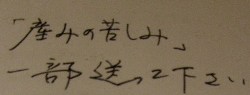 「産みの苦しみ」
一部送って下さい